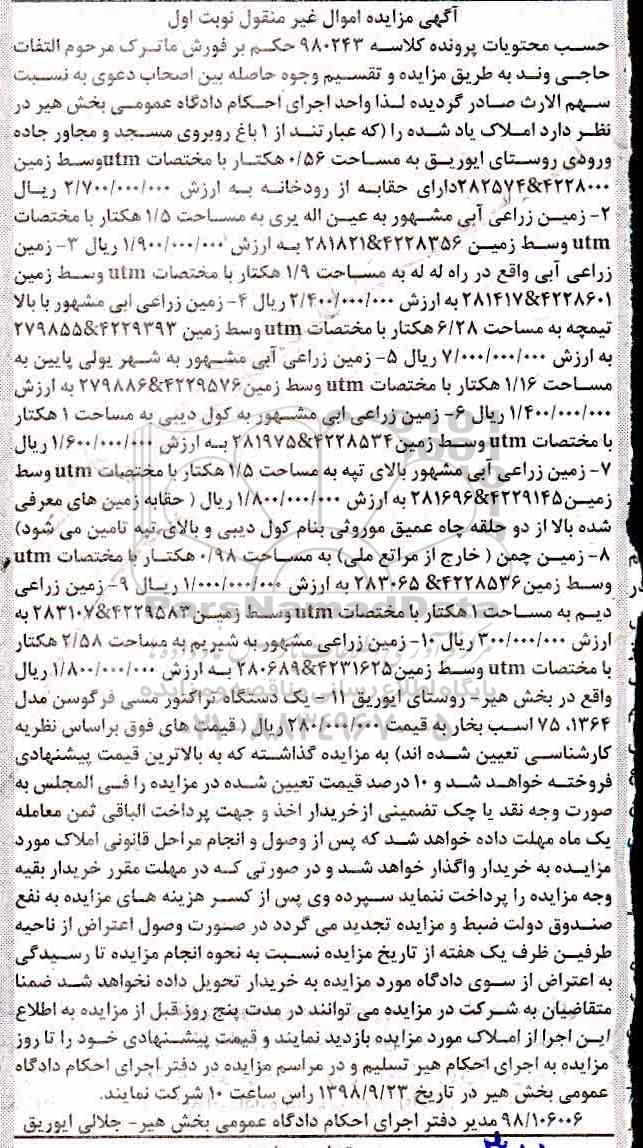 آگهی مزایده اموال غیر منقول نوبت اول
حسب محتویات پرونده کلاسه ۹۸۰۲۴۳ حکم بر فورش ماترک مرحوم التفات
حاجی وند به طریق مزایده و تقسیم وجوه حاصله بین اصحاب دعوی به نسبت
سهم الارث صادر گردیده لذا واحد اجرای احکام دادگاه عمومی بخش هیر در
نظر دارد املاک یاد شده را (که عبارتند از ۱ باغ روبروی مسجد و مجاور جاده
ورودی روستای ایوریق به مساحت ۰/۵۶ هکتار با مختصات utm وسط زمین
۲۸۲۵۷۴&۴۲۲۸۰۰۰ دارای حقابه از رودخانه به ارزش ۲/۷۰۰/۰۰۰/۰۰۰ ریال
۲- زمین زراعی آبی مشهور به عین اله یری به مساحت ۱/۵ هکتار با مختصات
utm وسط زمین ۲۸۱۸۲۱&۴۲۲۸۳۵۶ به ارزش ۱/۹۰۰/۰۰۰/۰۰۰ ریال ۳- زمین
زراعی آبی واقع در راه له له به مساحت ۱/۹ هکتار با مختصات utm وسط زمین
۲۸۱۴۱۷&۴۲۲۸۶۰۱ به ارزش ۲/۴۰۰/۰۰۰/۰۰۰ ریال ۴- زمین زراعی ابی مشهور با بالا
تیمچه به مساحت ۶/۲۸ هکتار با مختصات utm وسط زمین ۲۷۹۸۵۵&۴۲۲۹۳۹۳
به ارزش ۷/۰۰۰/۰۰۰/۰۰۰ ریال ۵- زمین زراعی آبی مشهور به شهر یولی پایین به
مساحت ۱/۱۶ هکتار با مختصات utm وسط زمین ۲۷۹۸۸۶&۴۲۲۹۵۷۶ به ارزش
۱/۴۰۰/۰۰۰/۰۰۰ ریال ۶- زمین زراعی ابی مشهور به کول دیبی به مساحت ۱ هکتار
با مختصات utm وسط زمین ۲۸۱۹۷۵&۴۲۲۸۵۳۴ به ارزش ۱/۶۰۰/۰۰۰/۰۰۰ ریال
۷- زمین زراعی آبی مشهور بالای تپه به مساحت ۱/۵ هکتار با مختصات utm وسط
زمین ۲۸۱۶۹۶&۴۲۲۹۱۴۵ به ارزش ۱/۸۰۰/۰۰۰/۰۰۰ ریال ( حقابه زمین های معرفی
شده بالا از دو حلقه چاه عمیق موروثی بنام کول دیبی و بالای تپه تامین می شود)
۸- زمین چمن ( خارج از مراتع ملی) به مساحت ۰/۹۸ هکتار با مختصات utm
وسط زمین ۲۸۳۰۶۵ &۴۲۲۸۵۳۶ به ارزش ۱/۰۰۰/۰۰۰/۰۰۰ ریال ۹- زمین زراعی
دیم به مساحت ۱ هکتار با مختصات utm وسط زمین ۲۸۳۱۰۷&۴۲۲۹۵۸۳ به
ارزش ۳۰۰/۰۰۰/۰۰۰ ریال ۱۰- زمین زراعی مشهور به شیریم به مساحت ۲/۵۸ هکتار
با مختصات utm وسط زمین ۲۸۰۶۸۹&۴۲۳۱۶۲۵ به ارزش ۱/۸۰۰/۰۰۰/۰۰۰ ریال
واقع در بخش هیر- روستای ایوریق ۱۱- یک دستگاه تراکتور مسی فرگوسن مدل
۱۳۶۴، ۷۵ اسب بخار به قیمت ۲۸۰/۰۰۰/۰۰۰ ریال ( قیمت های فوق براساس نظریه
کارشناسی تعیین شده اند) به مزایده گذاشته که به بالاترین قیمت پیشنهادی
فروخته خواهد شد و ۱۰ درصد قیمت تعیین شده در مزایده را فی المجلس به
صورت وجه نقد یا چک تضمینی از خریدار اخذ و جهت پرداخت الباقی ثمن معامله
یک ماه مهلت داده خواهد شد که پس از وصول و انجام مراحل قانونی املاک مورد
مزایده به خریدار واگذار خواهد شد و در صورتی که در مهلت مقرر خریدار بقیه
وجه مزایده را پرداخت ننماید سپرده وی پس از کسر هزینه های مزایده به نفع
صندوق دولت ضبط و مزایده تجدید می گردد در صورت وصول اعتراض از ناحیه
طرفین ظرف یک هفته از تاریخ مزایده نسبت به نحوه انجام مزایده تا رسیدگی
به اعتراض از سوی دادگاه مورد مزایده به خریدار تحویل داده نخواهد شد ضمنا
متقاضیان به شرکت در مزایده می توانند در مدت پنج روز قبل از مزایده به اطلاع
این اجرا از املاک مورد مزایده بازدید نمایند و قیمت پیشنهادی خود را تا روز
مزایده به اجرای احکام هیر تسلیم و در مراسم مزایده در دفتر اجرای احکام دادگاه
عمومی بخش هیر در تاریخ ۱۳۹۸/۹/۲۳ راس ساعت ۱۰ شرکت نمایند.
۹۸/۱۰۶۰۰۶ مدیر دفتر اجرای احکام دادگاه عمومی بخش هیر- جلالی ایوریق